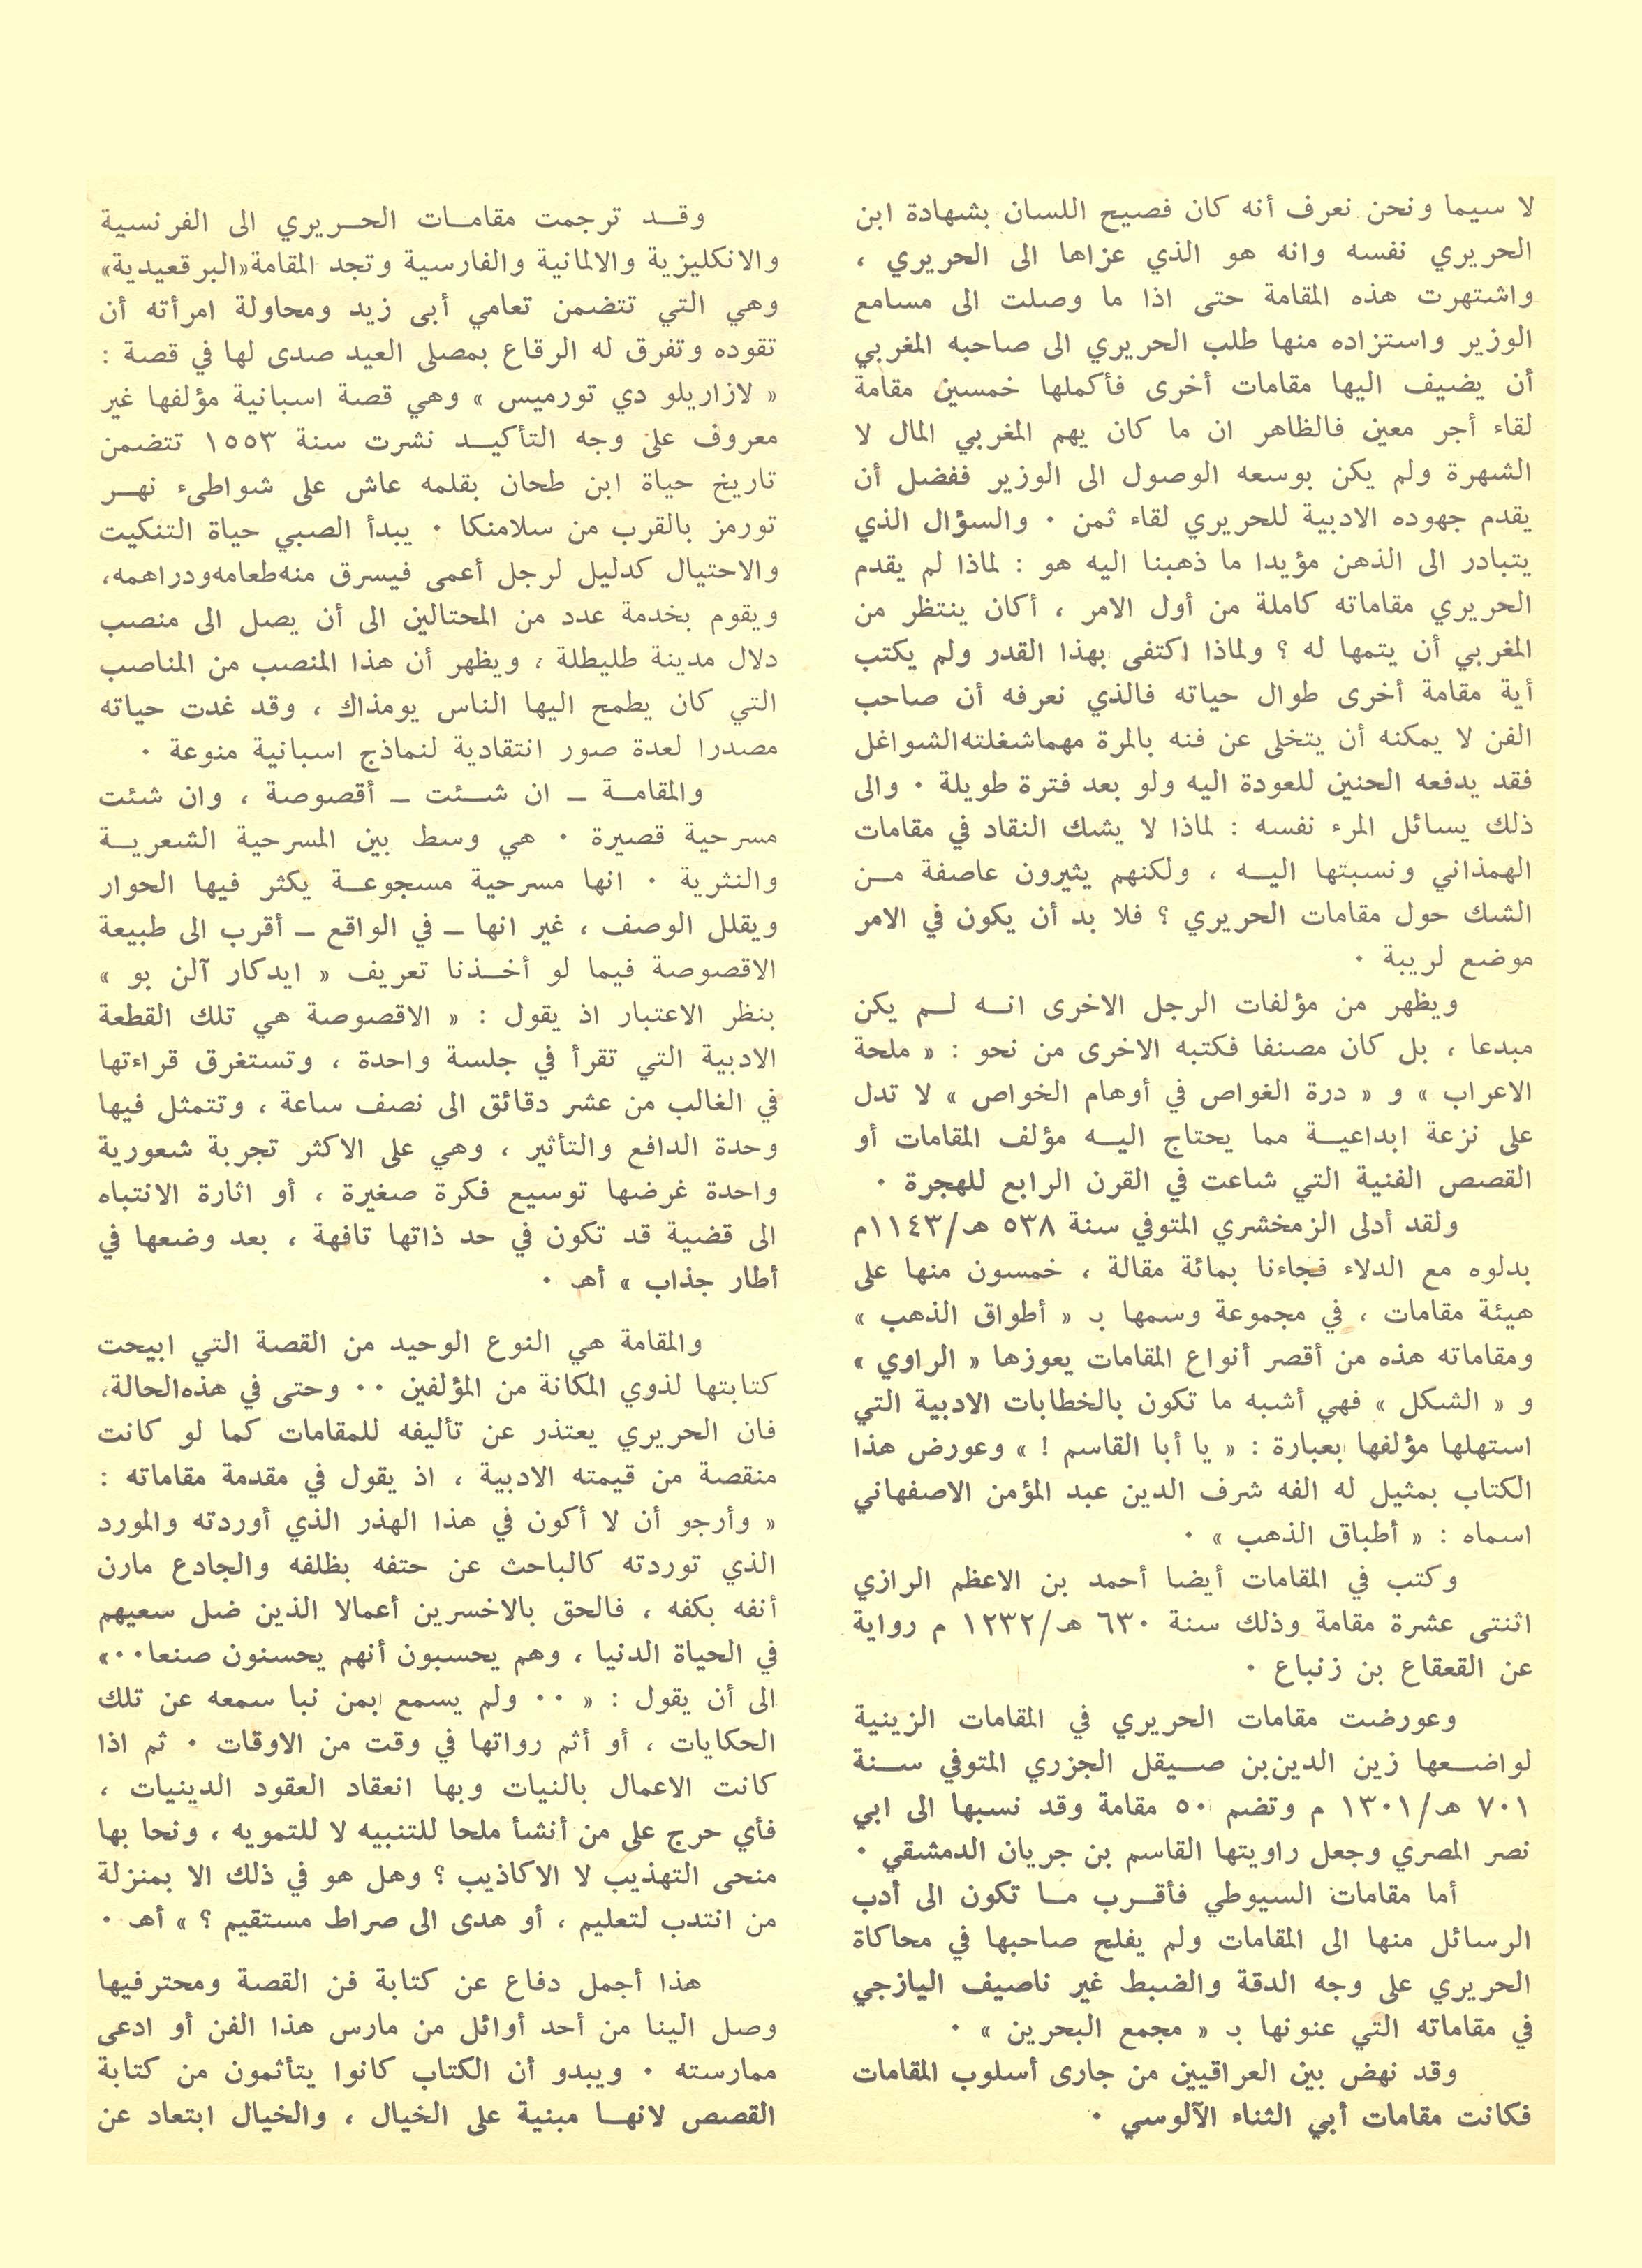 لا سيما ونحن نعرف أنه كان فصيح اللسان بشهادة ابن
الحريري نفسه وانه هو الذي عزاها الى الحريري ،
واشتهرت هذه المقامة حتى اذا ما وصلت الى مسامع
الوزير واستزاده منها طلب الحريري الى صاحبه المغربي
أن يضيف اليها مقامات أخرى فأكملها خمسين مقامة
لقاء أجر معين فالظاهر ان ما كان يهم المغربي المال لا
الشهرة ولم يكن بوسعه الوصول الى الوزير ففضل أن
يقدم جهوده الادبية للحريري لقاء ثمن ٠ والسؤال الذي
يتبادر الى الذهن مؤيدا ما ذهبنا اليه هو : لماذا لم يقدم
الحريري مقاماته كاملة من أول الامر ، أكان ينتظر من
المغربي أن يتمها له ؟ ولماذا اكتفى بهذا القدر ولم يكتب
أية مقامة أخرى طوال حياته فالذي نعرفه أن صاحب
الفن لا يمكنه أن يتخلى عن فنه بالمرة مهما شغلته الشواغل
فقد يدفعه الحنين للعودة اليه ولو بعد فترة طويلة ٠ والى
ذلك يسائل المرء نفسه : لماذا لا يشك النقاد في مقامات
الهمذاني ونسبتها اليــه ، ولكنهم يثيرون عاصفة مــن
الشك حول مقامات الحريري ؟ فلا بد أن يكون في الامر
موضع لريبة ٠
ويظهر من مؤلفات الرجل الاخرى انــه لــم يكن
مبدعا ، بل كان مصنفا فكتبه الاخرى من نحو : « ملحة
الاعراب » و « درة الغواص في أوهام الخواص » لا تدل
على نزعة ابداعيــة مما يحتاج اليــه مؤلف المقامات أو
القصص الفنية التي شاعت في القرن الرابع للهجرة ٠
ولقد أدلى الزمخشري المتوفي سنة ٥٣٨ هـ/١١٤٣م
بدلوه مع الدلاء فجاءنا بمائة مقالة ، خمسون منها على
هيئة مقامات ، في مجموعة وسمها بـ « أطواق الذهب »
ومقاماته هذه من أقصر أنواع المقامات يعوزها « الراوي »
و « الشكل » فهي أشبه ما تكون بالخطابات الادبية التي
استهلها مؤلفها بعبارة : « يا أبا القاسم ! » وعورض هذا
الكتاب بمثيل له الفه شرف الدين عبد المؤمن الاصفهاني
اسماه : « أطباق الذهب » ٠
وكتب في المقامات أيضا أحمد بن الاعظم الرازي
اثنتى عشرة مقامة وذلك سنة ٦٣٠ هـ/١٢٣٢ م رواية
عن القعقاع بن زنباع ٠
وعورضت مقامات الحريري في المقامات الزينية
لواضــعها زين الدين بن صــيقل الجزري المتوفي ســنة
٧٠١ هـ/١٣٠١ م وتضم ٥٠ مقامة وقد نسبها الى ابي
نصر المصري وجعل راويتها القاسم بن جريان الدمشقي ٠
أما مقامات السيوطي فأقــرب مــا تكون الى أدب
الرسائل منها الى المقامات ولم يفلح صاحبها في محاكاة
الحريري على وجه الدقة والضبط غير ناصيف اليازجي
في مقاماته التي عنونها بـ « مجمع البحرين » ٠
وقد نهض بين العراقيين من جارى أسلوب المقامات
فكانت مقامات أبي الثناء الآلوسي ٠
وقــد ترجمت مقامــات الحــريري الى الفرنسية
والانكليزية والالمانية والفارسية وتجد المقامة «البرقعيدية»
وهي التي تتضمن تعامي أبى زيد ومحاولة امرأته أن
تقوده وتفرق له الرقاع بمصلى العيد صدى لها في قصة :
« لازاريلو دي تورميس » وهي قصة اسبانية مؤلفها غير
معروف على وجه التأكيــد نشرت سنة ١٥٥٣ تتضمن
تاريخ حياة ابن طحان بقلمه عاش على شواطىء نهــر
تورمز بالقرب من سلامنكا ٠ يبدأ الصبي حياة التنكيت
والاحتيال كدليل لرجل أعمى فيسرق منه طعامه ودراهمه،
ويقوم بخدمة عدد من المحتالين الى أن يصل الى منصب
دلال مدينة طليطلة ، ويظهر أن هذا المنصب من المناصب
التي كان يطمح اليها الناس يومذاك ، وقد غدت حياته
مصدرا لعدة صور انتقادية لنماذج اسبانية منوعة ٠
والمقامــة ــ ان شــئت ــ أقصوصة ، وان شئت
مسرحية قصيرة ٠ هي وسط بين المسرحية الشعريــة
والنثرية ٠ انها مسرحية مسجوعــة يكثر فيها الحوار
ويقلل الوصف ، غير انها ــ في الواقع ــ أقرب الى طبيعة
الاقصوصة فيما لو أخــذنا تعريف « ايدكار آلن بو »
بنظر الاعتبار اذ يقول : « الاقصوصة هي تلك القطعة
الادبية التي تقرأ في جلسة واحدة ، وتستغرق قراءتها
في الغالب من عشر دقائق الى نصف ساعة ، وتتمثل فيها
وحدة الدافع والتأثير ، وهي على الاكثر تجربة شعورية
واحدة غرضها توسيع فكرة صغيرة ، أو اثارة الانتباه
الى قضية قد تكون في حد ذاتها تافهة ، بعد وضعها في
أطار جذاب » أهـ ٠
والمقامة هي النوع الوحيد من القصة التي ابيحت
كتابتها لذوي المكانة من المؤلفين ٠٠ وحتى في هذه الحالة،
فان الحريري يعتذر عن تأليفه للمقامات كما لو كانت
منقصة من قيمته الادبية ، اذ يقول في مقدمة مقاماته :
« وأرجو أن لا أكون في هذا الهذر الذي أوردته والمورد
الذي توردته كالباحث عن حتفه بظلفه والجادع مارن
أنفه بكفه ، فالحق بالاخسرين أعمالا الذين ضل سعيهم
في الحياة الدنيا ، وهم يحسبون أنهم يحسنون صنعا٠٠»
الى أن يقول : « ٠٠ ولم يسمع بمن نبا سمعه عن تلك
الحكايات ، أو أثم رواتها في وقت من الاوقات ٠ ثم اذا
كانت الاعمال بالنيات وبها انعقاد العقود الدينيات ،
فأي حرج على من أنشأ ملحا للتنبيه لا للتمويه ، ونحا بها
منحى التهذيب لا الاكاذيب ؟ وهل هو في ذلك الا بمنزلة
من انتدب لتعليم ، أو هدى الى صراط مستقيم ؟ » أهـ ٠
هذا أجمل دفاع عن كتابة فن القصة ومحترفيها
وصل الينا من أحد أوائل من مارس هذا الفن أو ادعى
ممارسته ٠ ويبدو أن الكتاب كانوا يتأثمون من كتابة
القصص لانهــا مبنية على الخيال ، والخيال ابتعاد عن